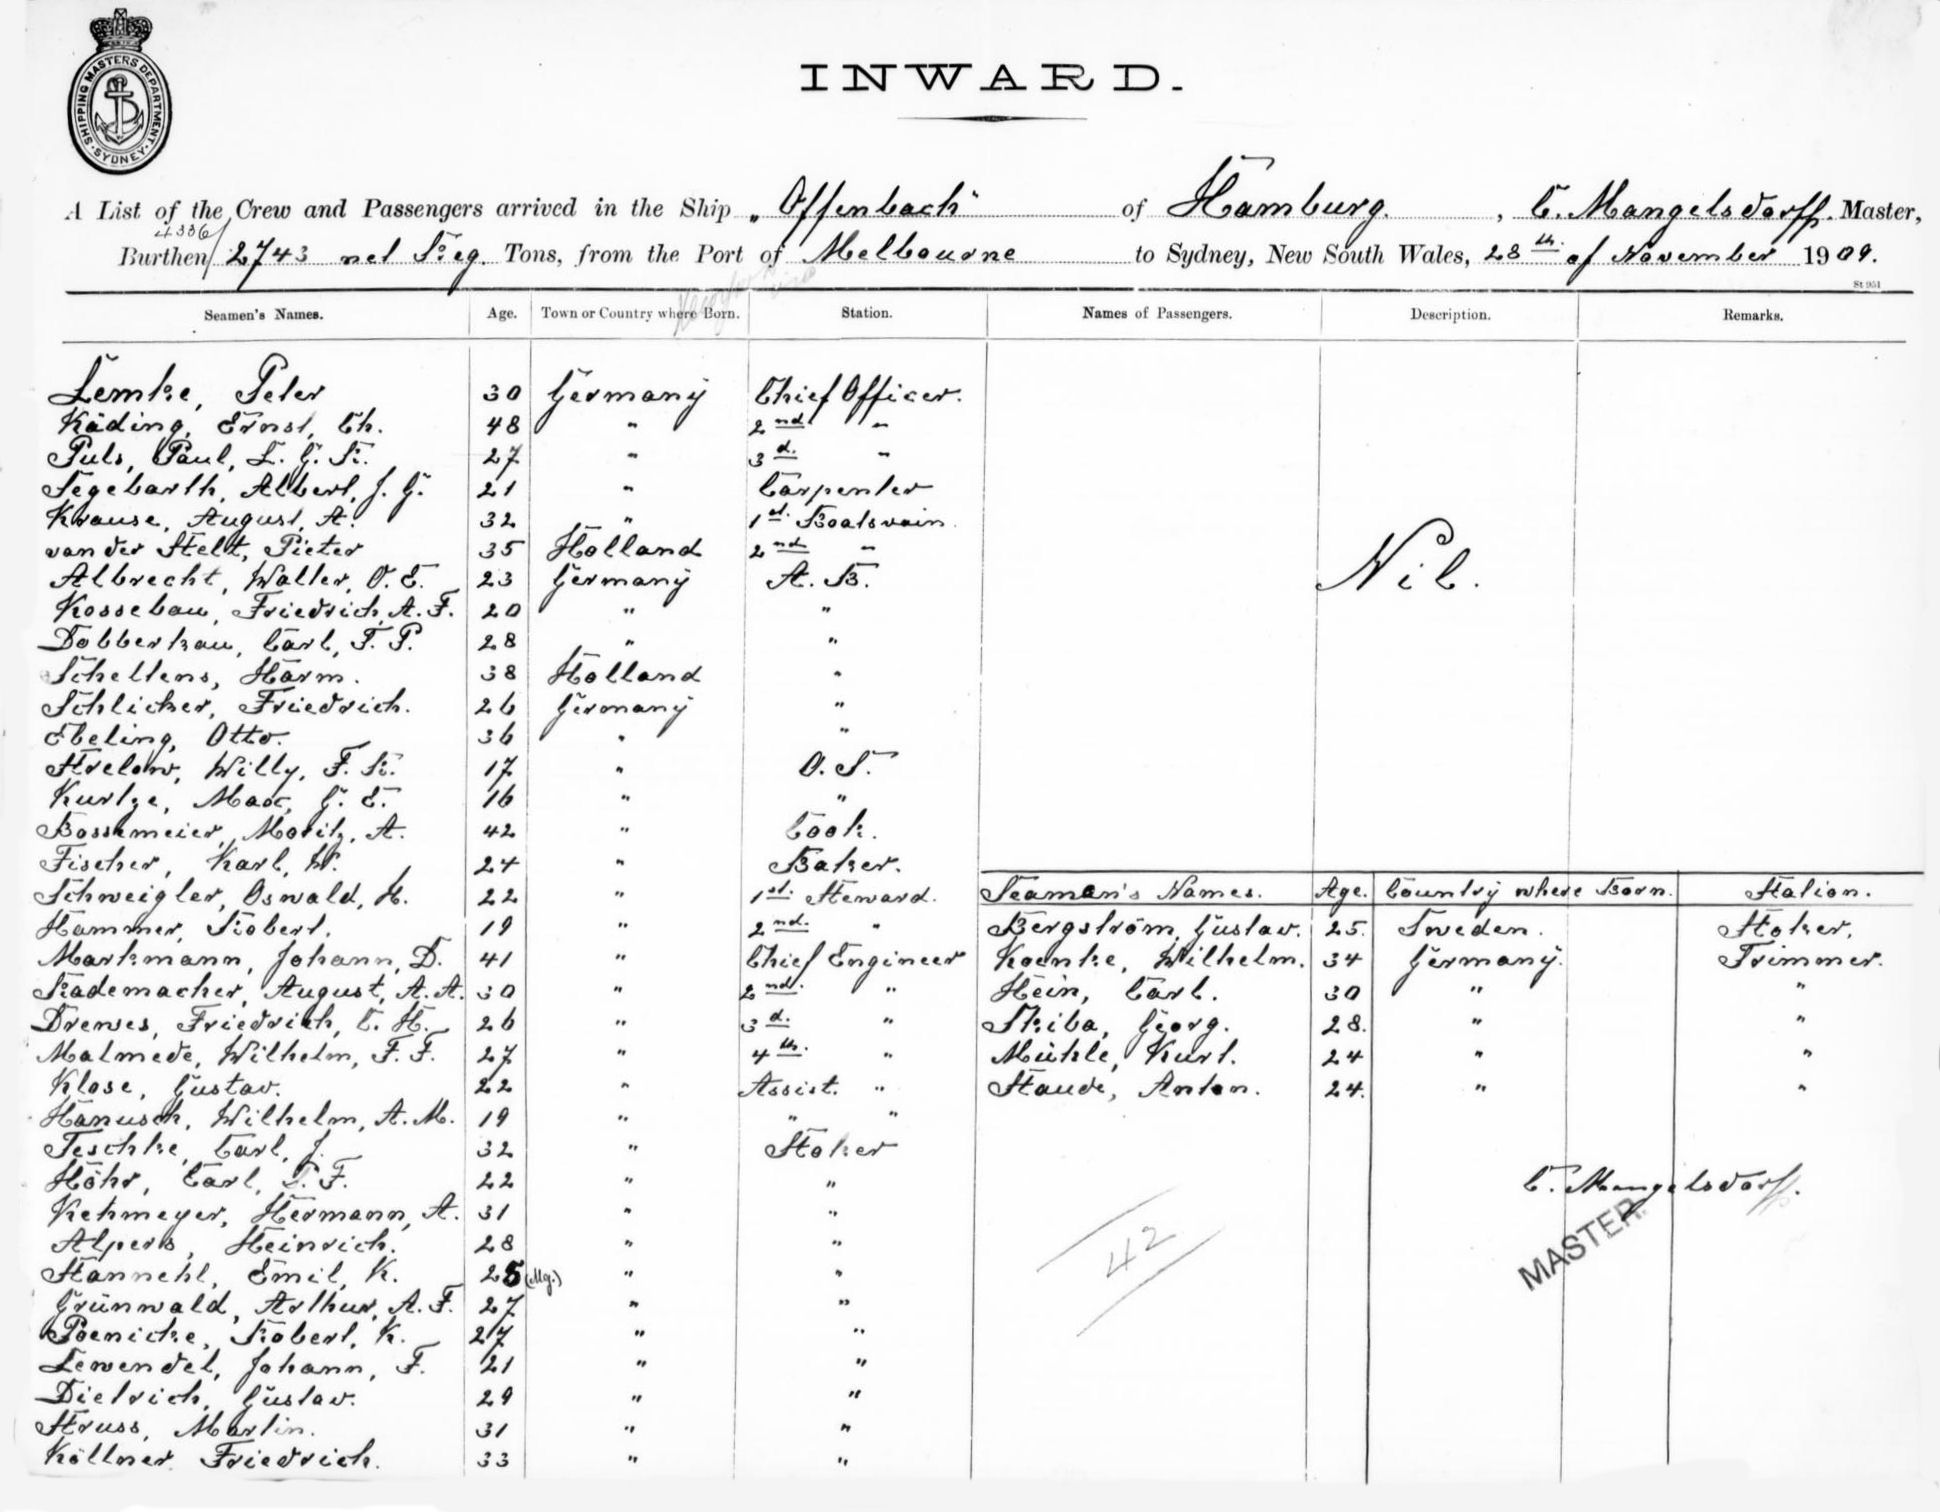 SHIPPING MASTERS DEPARTMENT. SYDNEY.
INWARD.
A List of the Crew and Passengers arrived in the Ship „Offenbach" of Hamburg. , C. Mangelsdorff. Master,
4336/
Burthen 2743 net Reg. Tons, from the Port of Melbourne to Sydney, New South Wales, 28th. of November 1909.
St 951
Seamen's Names. Age. Town or Country where Born. Station. Names of Passengers. Description. Remarks.
Lemke, Peter 30 Germany Chief Officer.
Käding, Ernst, Ch. 48 " 2nd. "
Puls, Paul, L. G. R. 27 " 3d. "
Segebarth, Albert, J. G. 21 " Carpenter
Krause, August, A. 32 " 1st. Boatsvain.
van der Stelt, Pieter 35 Holland 2nd "
Albrecht, Walter, O. E. 23 Germany A. B.
Kossebau, Friedrich, A. F. 20 " "
Dobberkau, Carl, F. P. 28 " "
Scheltens, Harm. 38 Holland "
Schlicker, Friedrich. 26 Germany "
Ebeling, Otto. 36 " "
Strelow, Willy, F. R. 17 " O. S.
Kurtze, Max, G. E. 16 " "
Bossemeier, Moritz, A. 42 " Cook.
Fischer, Karl, W. 24 " Baker.
Schweigler, Oswald, H. 22 " 1st. Steward.
Hammer, Robert. 19 " 2nd. "
Markmann, Johann, D. 41 " Chief Engineer
Rademacher, August, A. A. 30 " 2nd. "
Drewes, Friedrich, C. H. 26 " 3d. "
Malmede, Wilhelm, F. F. 27 " 4th. "
Klose, Gustav. 22 " Assist. "
Hanusch, Wilhelm, A. M. 19 " " "
Teschke, Carl, J. 32 " Stoker
Höhr, Carl, F. 22 " "
Kehmeyer, Hermann, A. 31 " "
Alpers, Heinrich. 28 " "
Stannehl, Emil, K. 25 (Mg.) " "
Grünwald, Arthur, A. F. 27 " "
Poenicke, Robert, K. 27 " "
Lewendel, Johann, F. 21 " "
Dietrich, Gustav. 29 " "
Struss, Martin. 31 " "
Köllner, Friedrich. 33 " "
Nil.
Seaman's Names. Age. Country where Born. Station.
Bergström, Gustav. 25. Sweden. Stoker.
Koenke, Wilhelm. 34 Germany. Trimmer.
Hein, Carl. 30 " "
Skiba, Georg. 28. " "
Mühle, Kurt. 24 " "
Staude, Anton. 24. " "
C. Mangelsdorff.
MASTER.
42